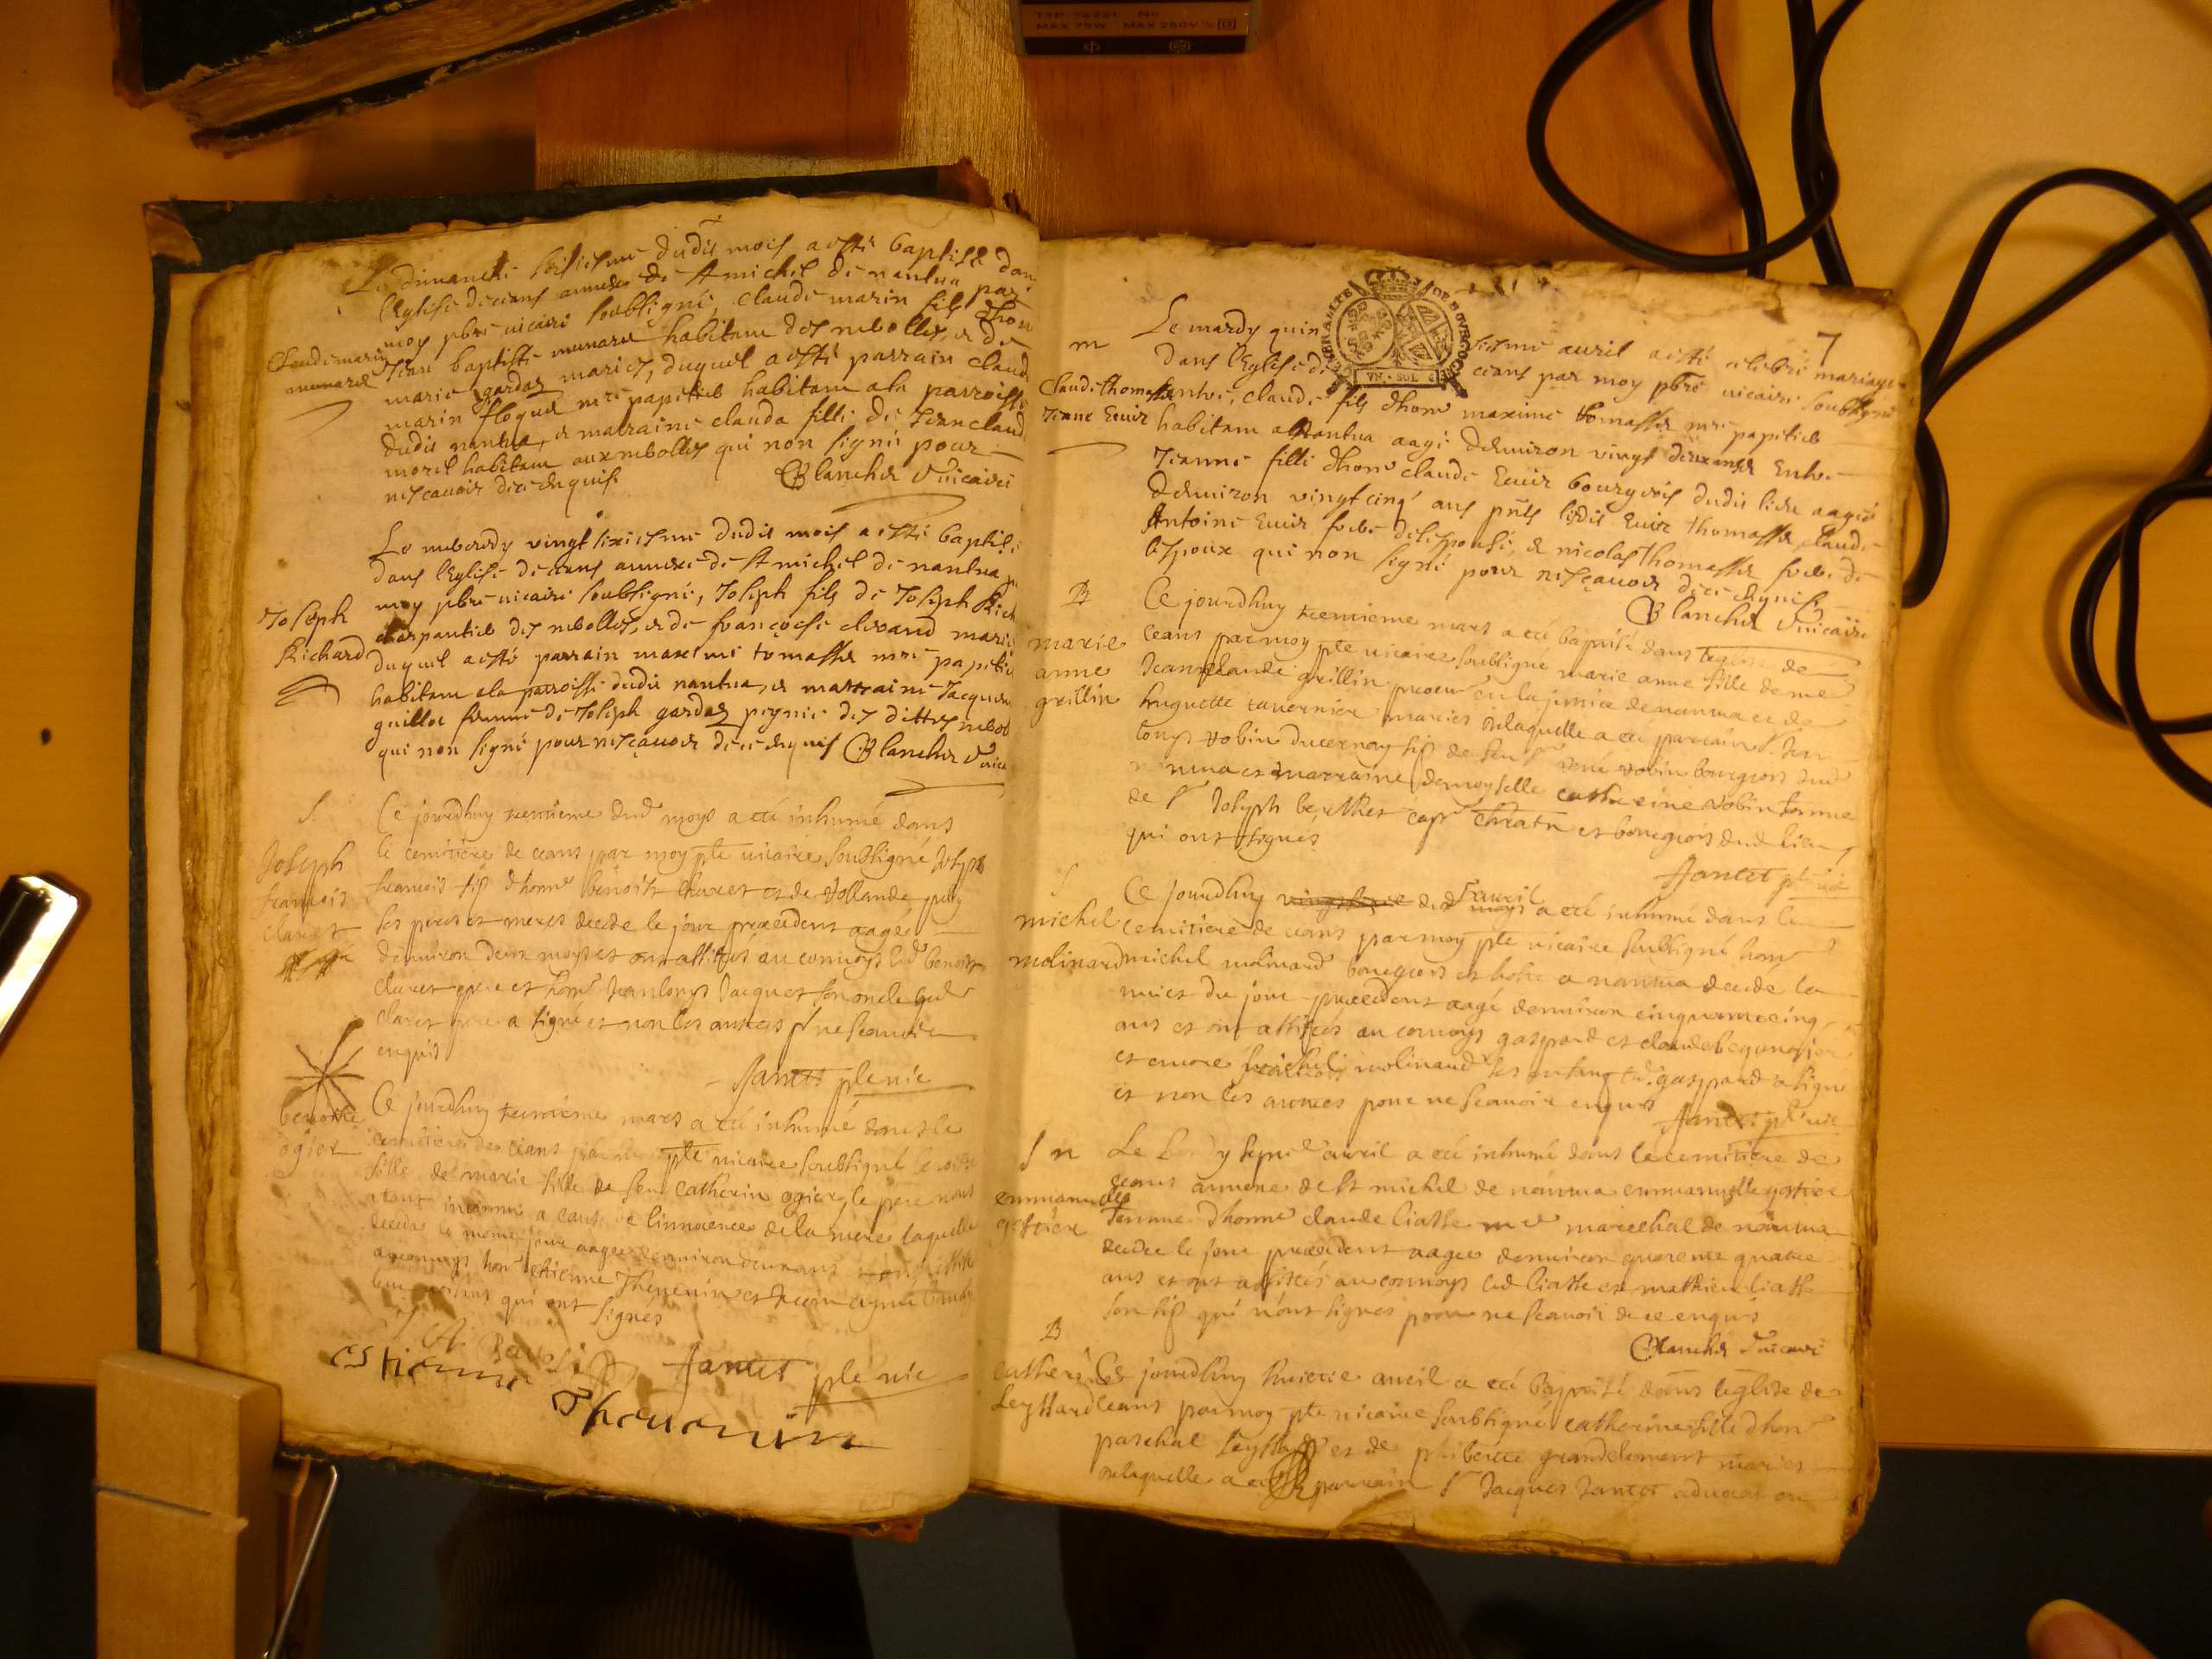 TYP 76221 No
MAX 75W MAX 250V
Le dimanche seisiesme dudit mois a esté baptisé dan
l'Eglise de ceans annexe de St michel de nantua par
moy pbre vicaire soubsigné, claude marin fils dhon
Claude marin
munaret
Jean baptiste munaret habitam des nebolles, et de
marie gardaz mariez, duquel a esté parrain claud
marin floquet mre papetieb habitam a la parroisse
dudit nantua, et marraine clauda fille de Jean claud
morel habitam aux nebolles qui non signé pour
nesçavoir de ce enquis
Blanchet Vicaire
Le mebcredy vingt sixiesme dudit mois a esté baptisé
dans l'Eglise de ceans annexe de St michel de nantua p
moy pbre vicaire soubsigné, Joseph fils de Joseph Rich
Joseph
Richard
charpantieb des nebolles, et de françoise chevand marie
duquel a esté parrain maxime tomasset mre papetie
habitam a la parroisse dudit nantua, et marraine Jacquem
guillot femme de Joseph gardaz pignie des dittes nebol
qui non signé pour nesçavoir de ce enquis Blanchet Vica
S.
Ce jourdhuy dud moys a eté inhumé dans
le cemitiere de ceans par moy ptre vicaire soubsigné Joseph
Joseph
francois
claret
francois fils dhonne benoist claret et de Vollande
ses peres et meres decede le jour precedent aagé
denviron deux moys et ont assistés au convoys led benoist
claret pere et hon Jean louys Jacquet son oncle led
claret pere a signé et non les autres pr ne scavoir
enquis
Jantet ptre vic
benoite
ogier
Ce jourdhuy mars a eté inhumé dans le
cemitiere de ceans par moy ptre vicaire soubsigné benoite
fille de marie fille de feu Catherin ogier le pere nous
etant inconnu a cause de l'innocence de la mere laquelle
decedee le meme jour aagee denviron deux ans
au convoys hon estienne Thevenin et
leur voisins qui ont signés
Jantet ptre vic
estienne
Thevenin
7
GENERALITE DE BOVRGOGNE
VN · SOL
m
Le mardy quin siesme avril a esté celebré mariage
dans l'Eglise de ceans par moy pbre vicaire soubsigné
Claude thomasset
Jeane Euvir
Entre, claude fils dhon maxime thomasset mre papetieb
habitam a Nantua aagé denviron vingt deux ans et Entre
Jeanne fille dhon claude Euvir bourgeois dudit lieu aagée
denviron vingt cinq ans pnts lesdit Euvir thomasset, claude
Antoine Euvir frebe de lespouse, et nicolas thomasset frebe de
lespoux qui non signé pour nesçavoir de ce enquis
Blanchet Vicaire
B
Ce jourdhuy mars a eté baptisé dans leglise de
marie
anne
grillin
ceans par moy ptre vicaire soubsigné marie anne fille de me
Jean claude grillin procur en la justice de nantua et de
huguette tavernier mariés de laquelle a eté parrain Sr Jean
louys Robin fils de feu Sr René Robin bourgeois dud
nantua et marraine demoyselle catherine Robin femme
de Sr Joseph capr chratn et bourgeois dud lieu
qui ont signés
Jantet ptre vic
S
michel
molinard
Ce jourdhuy dud avril a eté inhumé dans le
cemitiere de ceans par moy ptre vicaire soubsigné hon
michel molinard bourgeois et hoste a nantua decede la
nuict du jour precedent aagé denviron cinquante cinq
ans et ont assistés au convoys gaspard et claude
et encore michel molinard ses enfans led gaspard a signé
et non les autres pour ne scavoir enquis
Jantet ptre vic
S n
Le avril a eté inhumé dans le cemitiere de
emmanuelle
ceans annexe de St michel de nantua emmanuelle
femme dhonne claude liatte mre marechal de nantua
decedee le jour precedent aagee denviron quarente quatre
ans et ont assistés au convoys led liatte et mathieu liatte
son fils qui n'ont signés pour ne scavoir de ce enquis
Blanchet Vicaire
B
catherine
Leyttard
Ce jourdhuy avril a eté baptisé dans leglise de
ceans par moy ptre vicaire soubsigné catherine fille dhon
paschal leyttard et de philberte grandclement mariés
de laquelle a eté parrain Sr Jacques Jantet advocat en